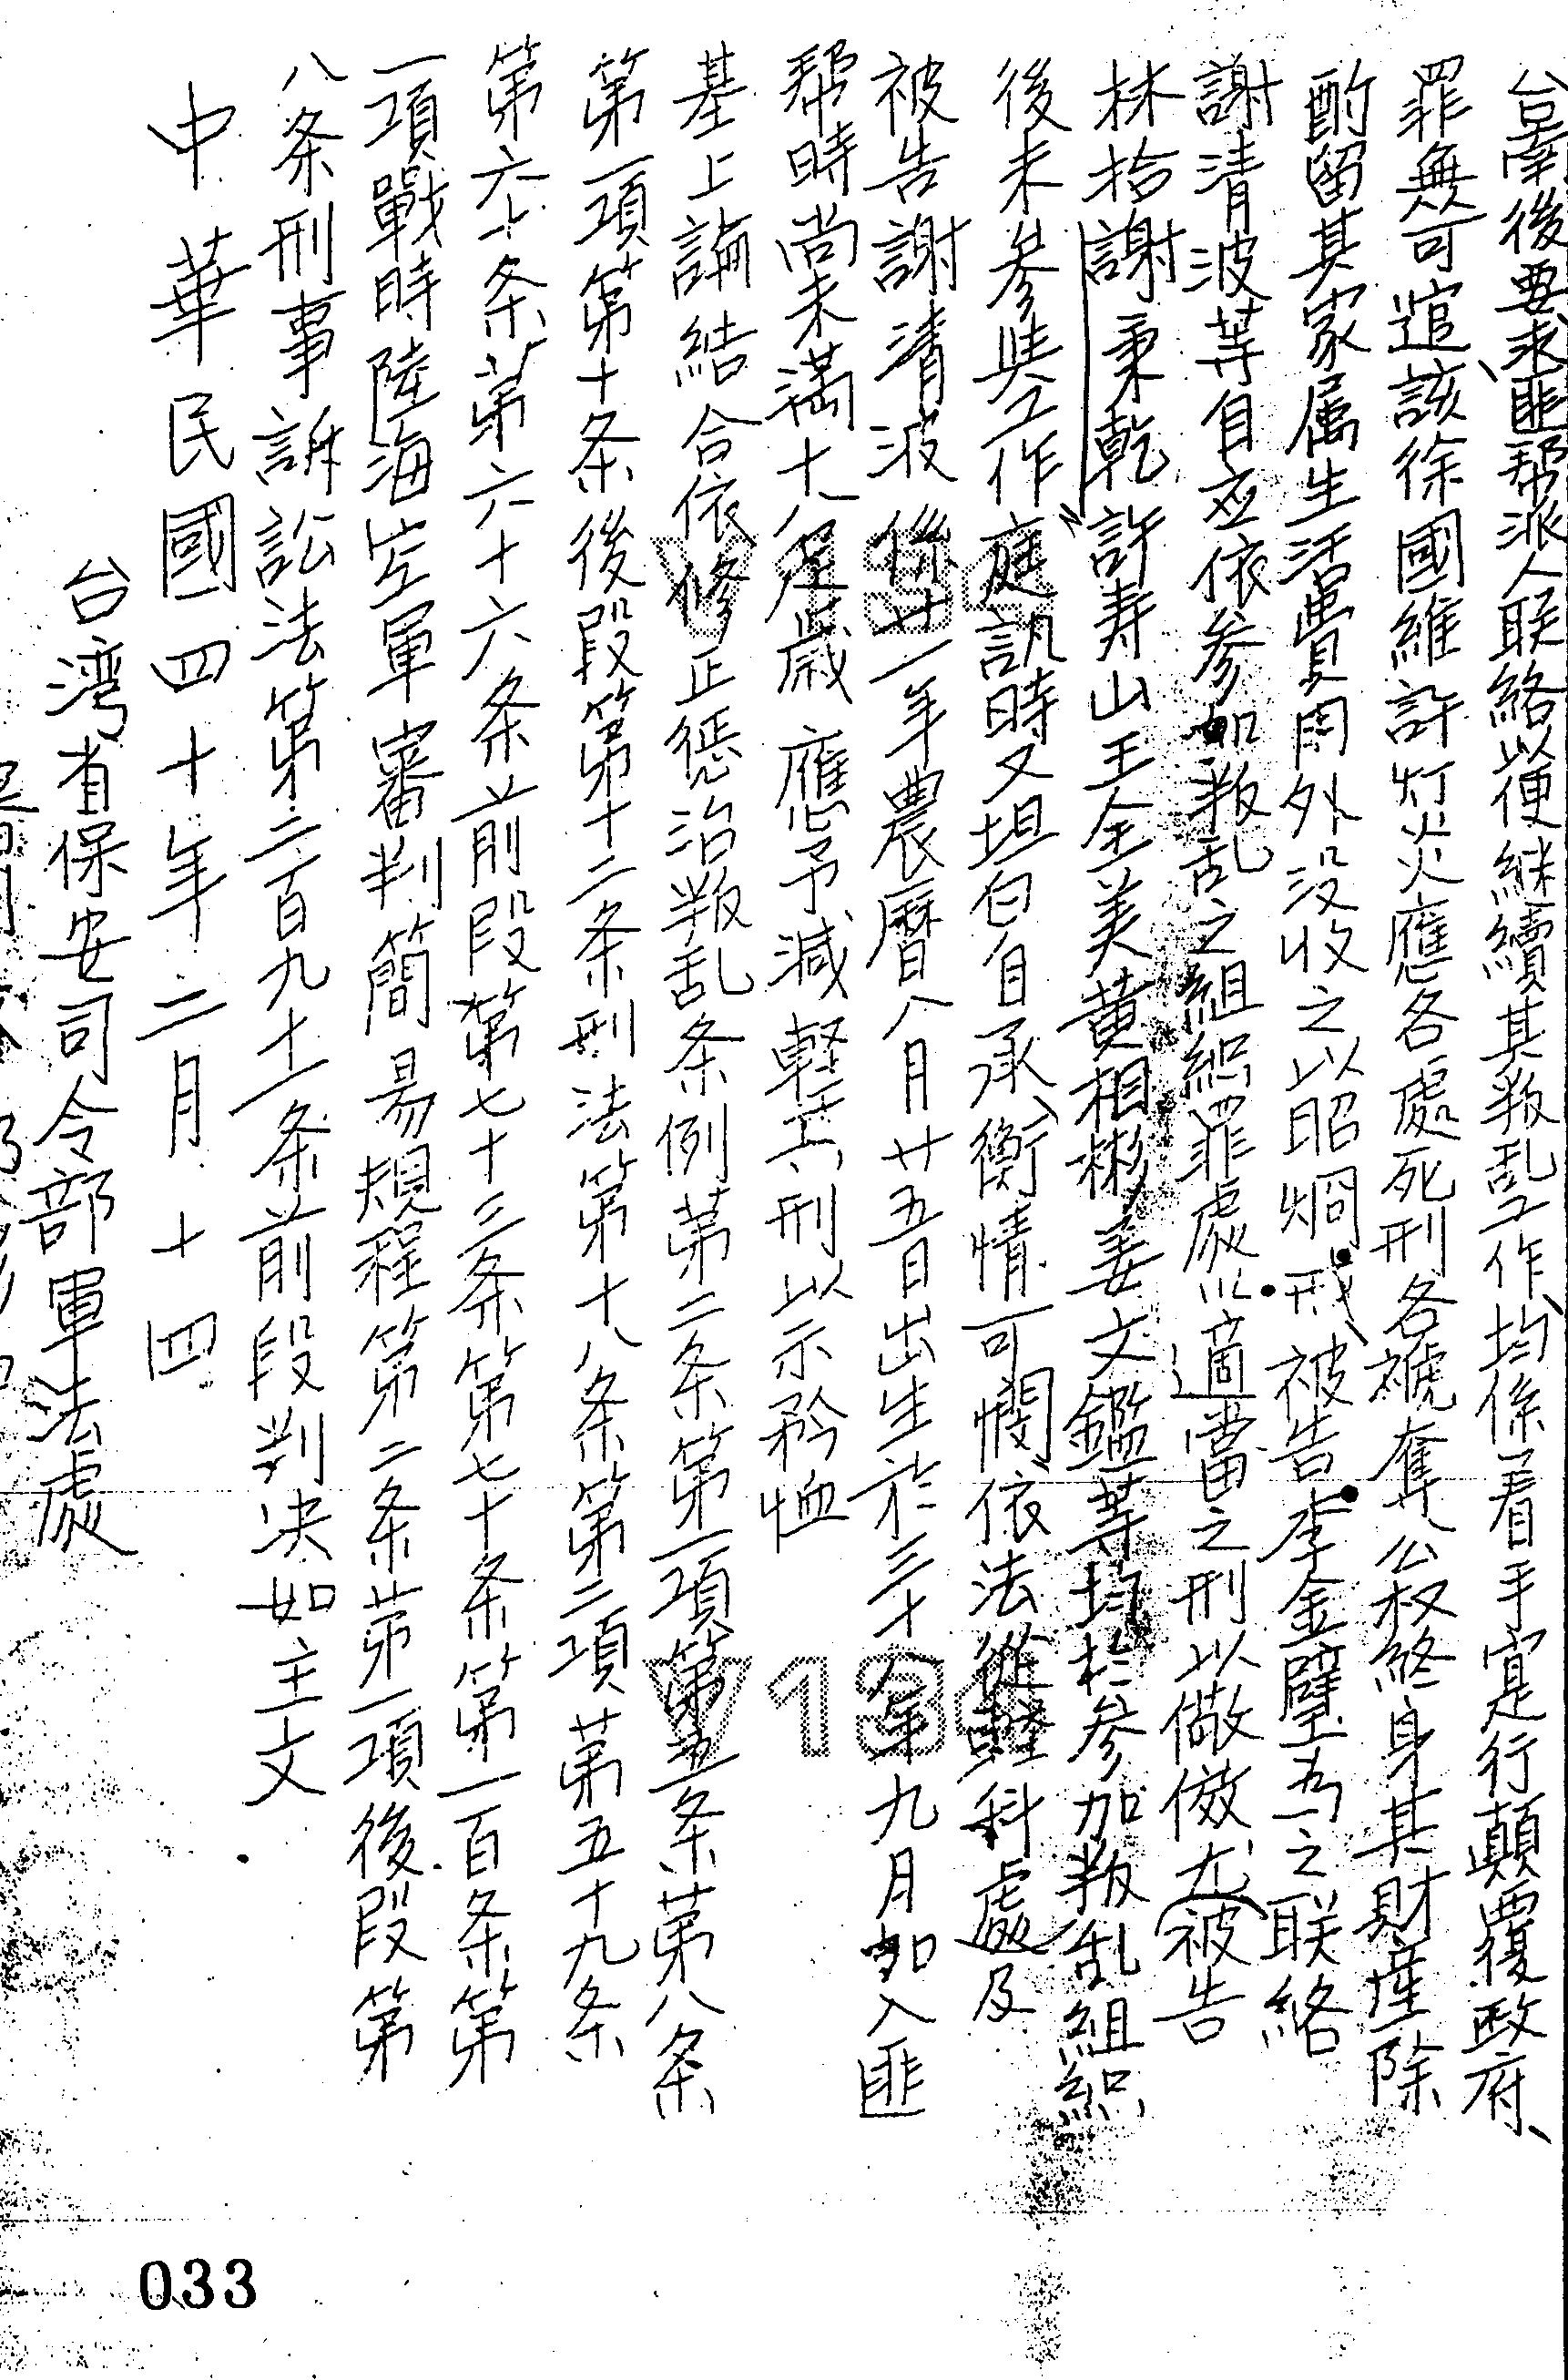 台南後要求匪帮派人联絡以便継續其叛乱工作、均係着手寔行顛覆政府、
罪無可逭該徐國維許灯炎應各處死刑各褫奪公权終身其財産除
酌留其家属生活費用外没收之以昭烱戒、被告李金璧為之联絡
謝清波等自应依参加叛乱之組織罪處以適當之刑以儆傚尤被告
林拾謝秉乾許寿山王全美黄相彬姜文鑑等均於参加叛乱組織
後未参與工作、庭訊時又坦白自承、衡情可憫依法從輕科處及
被告謝清波係廿一年農暦八月廿五日出生於三十八年九月加入匪
帮時尚未満十八足歳應予减軽其刑以示矜恤
基上論結合依修正惩治叛乱条例第二条第一項第五条第八条
第一項第十条後段第十二条刑法第十八条第二項第五十九条
第六十条第六十六条前段第七十三条第七十条第一百条第
一項戰時陸海空軍審判簡易規程第二条第一項後段第
八条刑事訴訟法第二百九十一条前段判决如主文
中華民國四十年二月十四
台湾省保安司令部軍法處
033